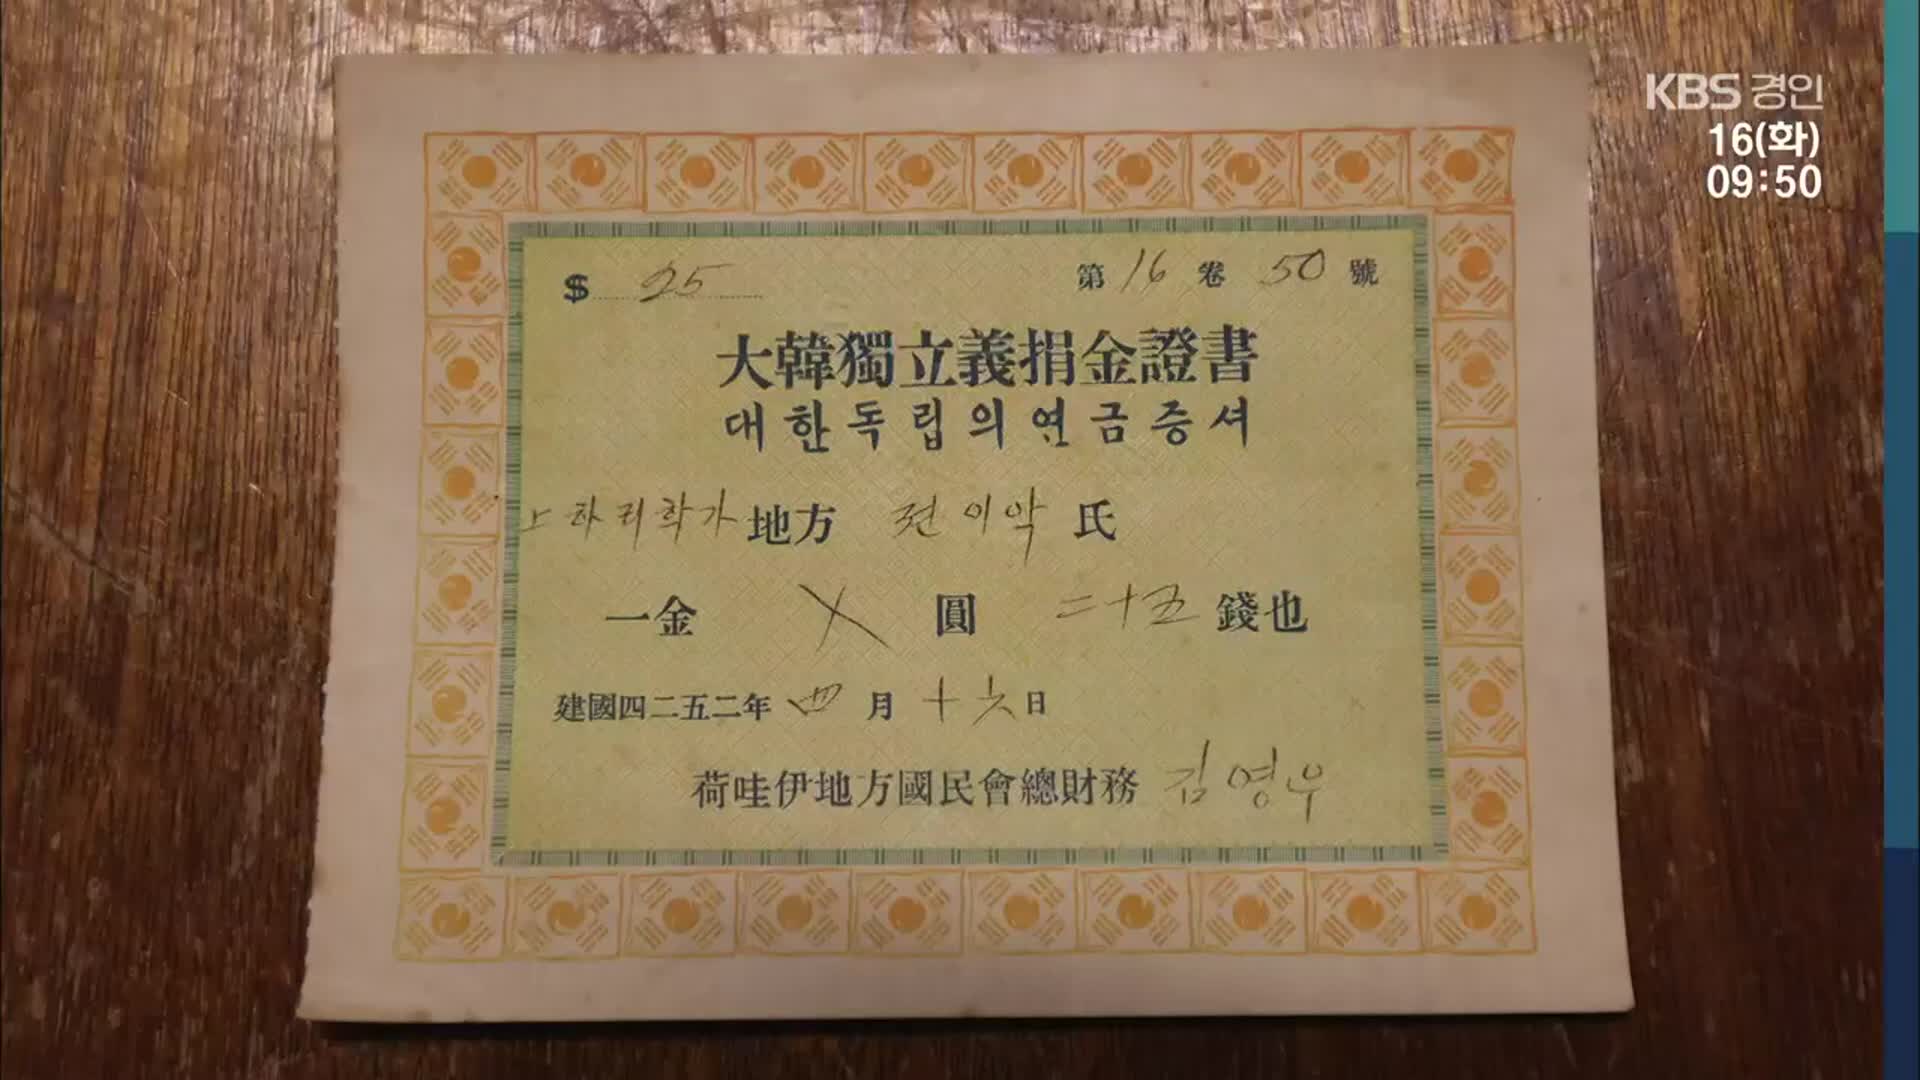 KBS 경인
16(화)
09:50
$ 25 第 16 卷 50 號
大韓獨立義捐金證書
대한독립의연금증셔
地方 전이악 氏
一金 圓 二十五 錢也
建國四二五二年 四 月 十六 日
荷哇伊地方國民會總財務 김영우